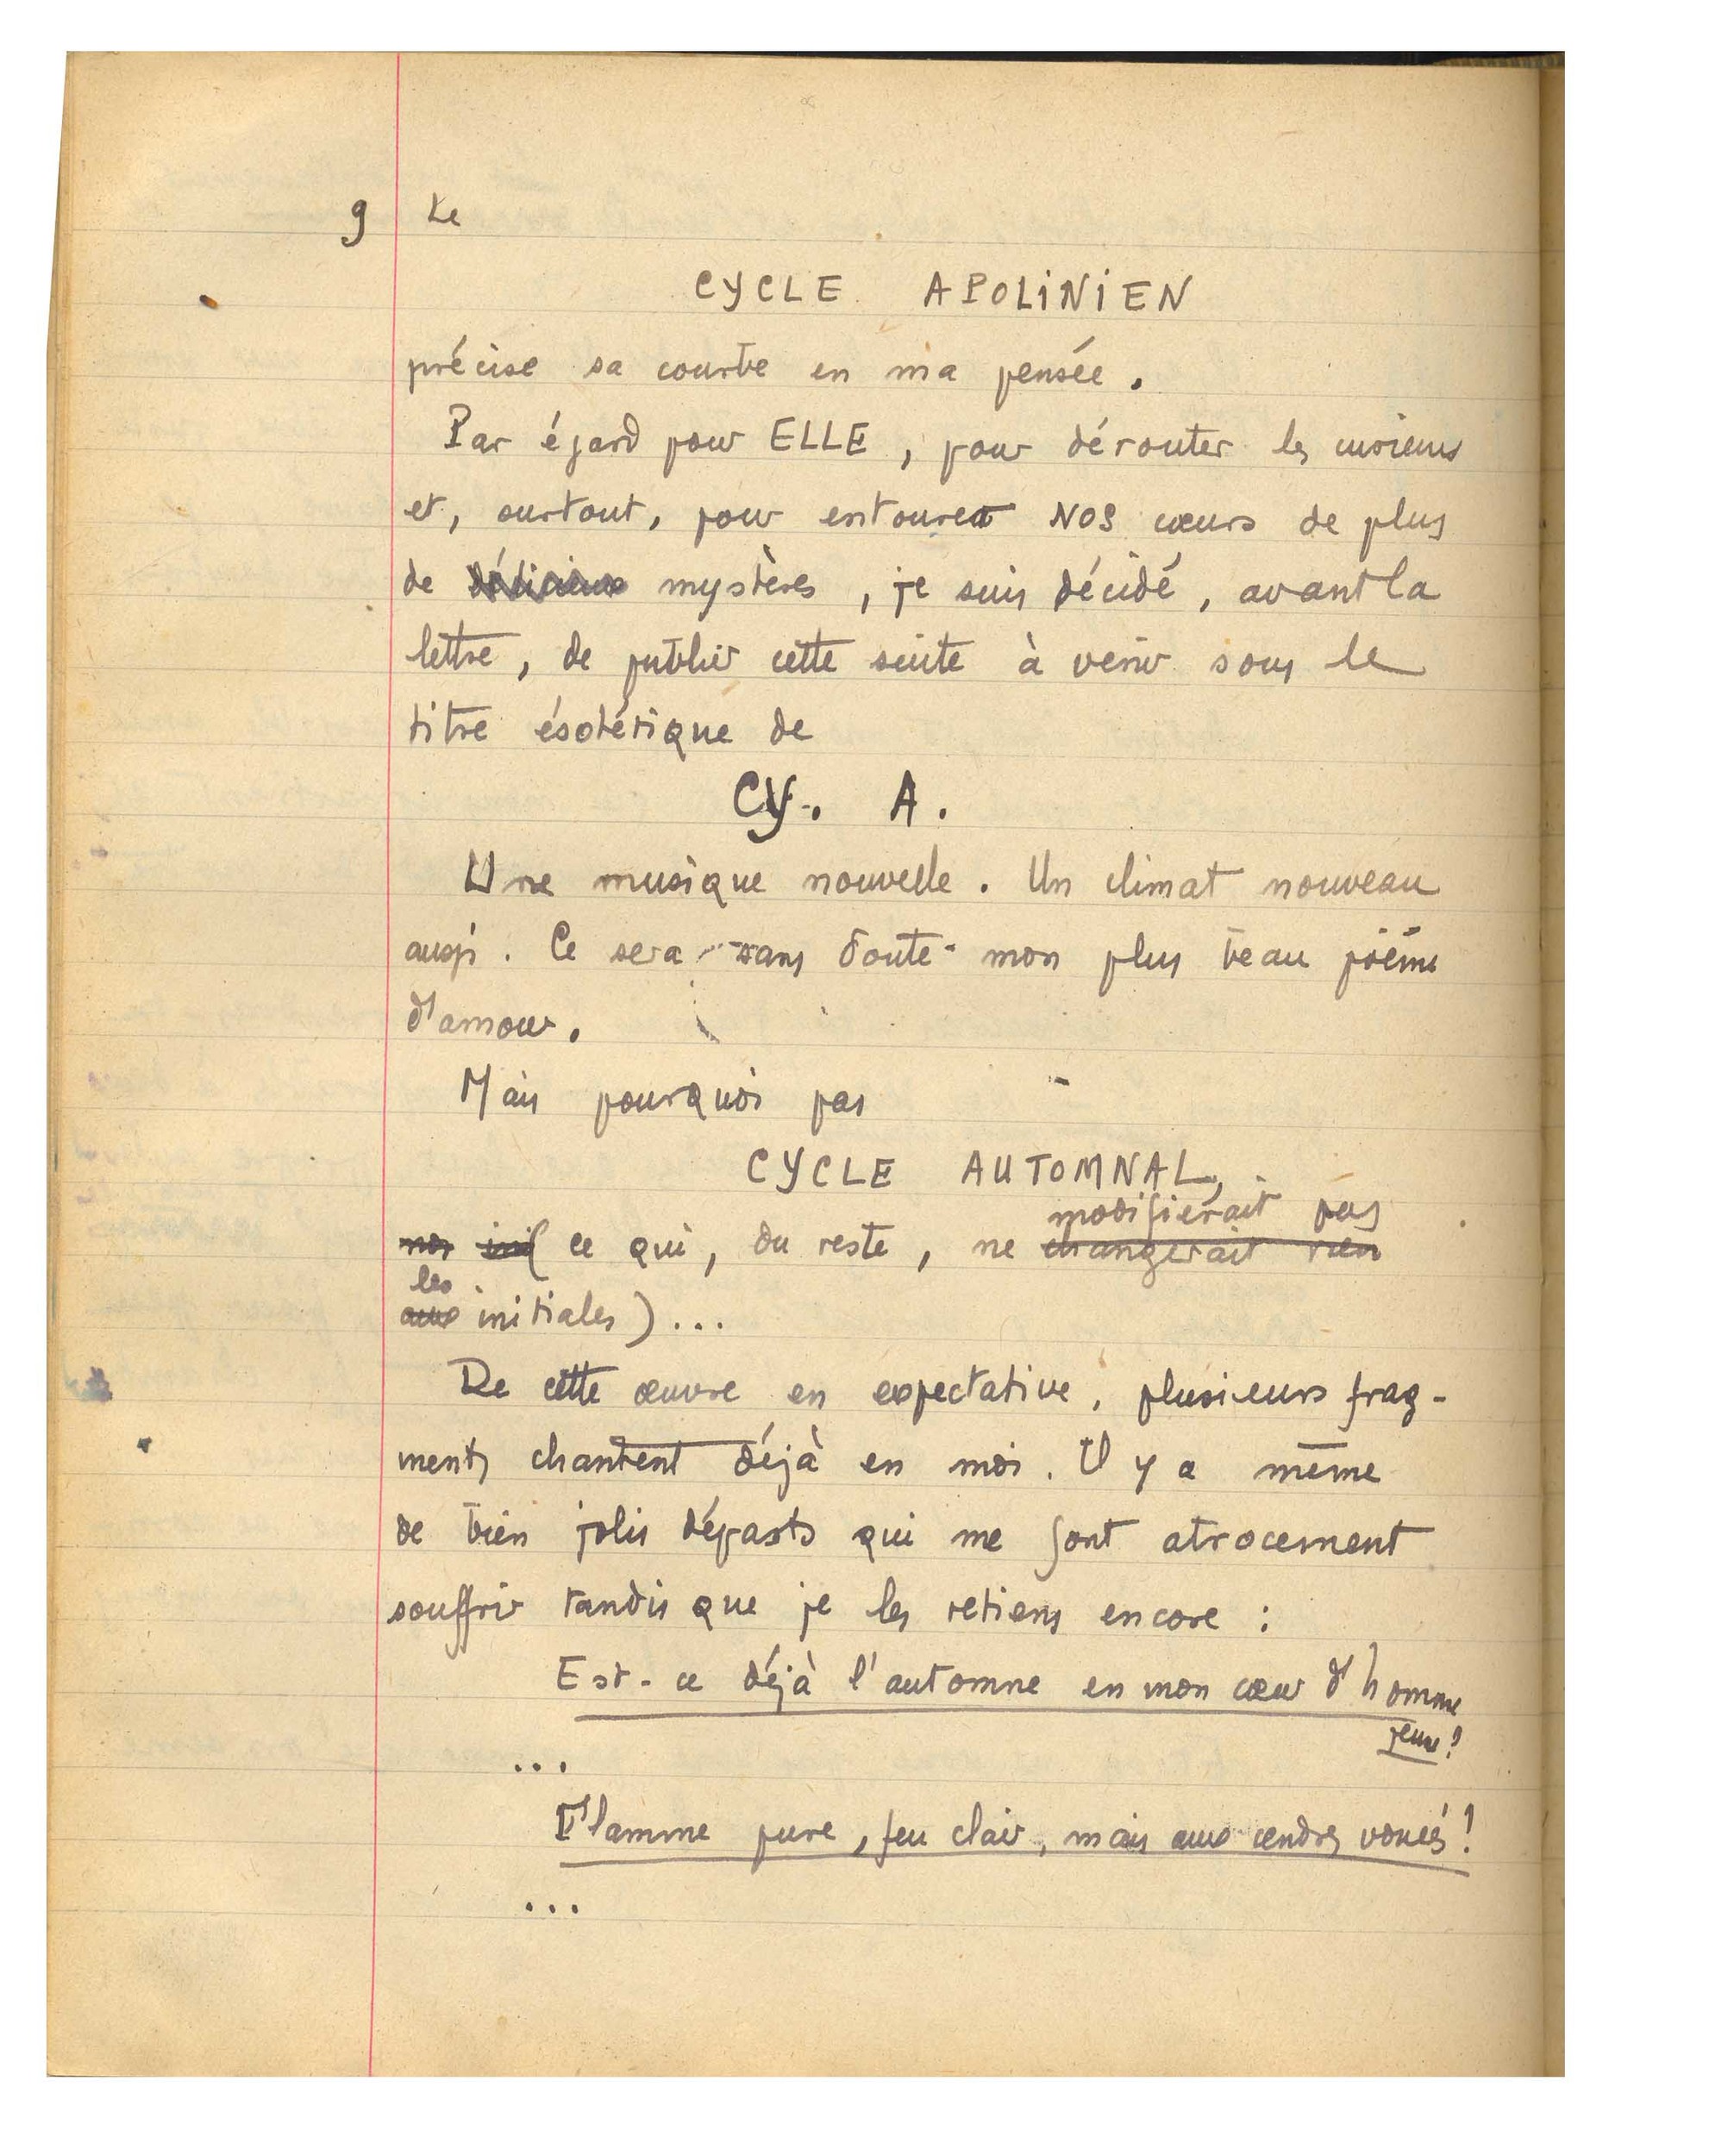 9 Le
CYCLE APOLINIEN
précise sa courbe en ma pensée.
Par égard pour ELLE, pour dérouter les curieux
et, surtout, pour entourer NOS cœurs de plus
de délicieux mystères, je suis décidé, avant la
lettre, de publier cette suite à venir sous le
titre ésotérique de
CY. A.
Une musique nouvelle. Un climat nouveau
aussi. Ce sera - sans doute - mon plus beau poème
d'amour.
Mais pourquoi pas
CYCLE AUTOMNAL,
modifierait pas
nos ini (ce qui, du reste, ne changerait rien
les
aux initiales)...
De cette œuvre en expectative, plusieurs frag-
ments chantent déjà en moi. Il y a même
de bien jolis départs qui me font atrocement
souffrir tandis que je les retiens encore :
Est-ce déjà l'automne en mon cœur d'homme
jeune?
...
Flamme pure, feu clair, mais aux cendres voués!
...